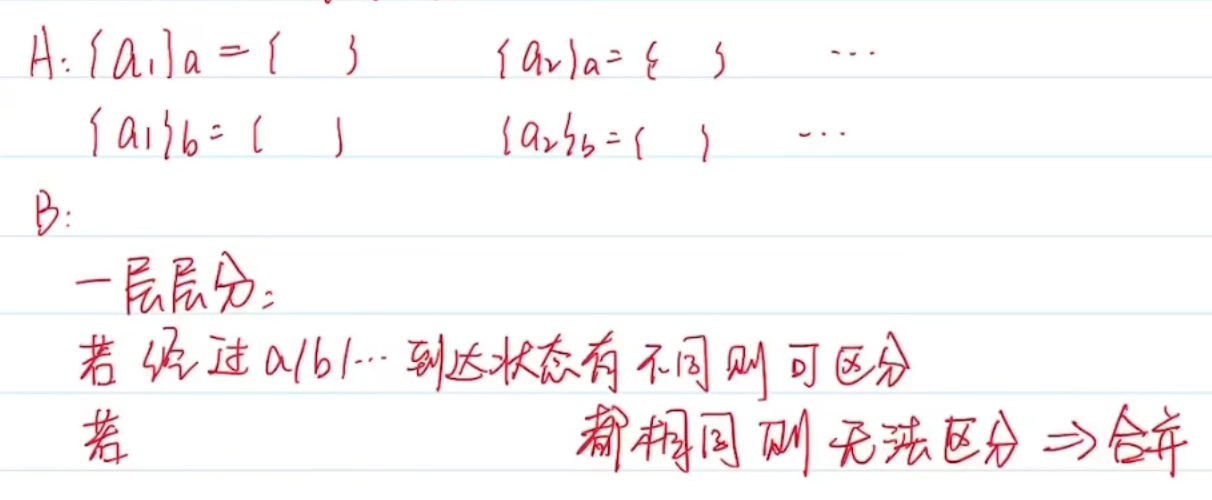 A: {a₁}a = { } {a₂}a = { } ...
{a₁}b = { } {a₂}b = { } ...
B:
一层层分:
若经过a/b/...到达状态有不同则可区分
若 都相同则无法区分 ⇒ 合并